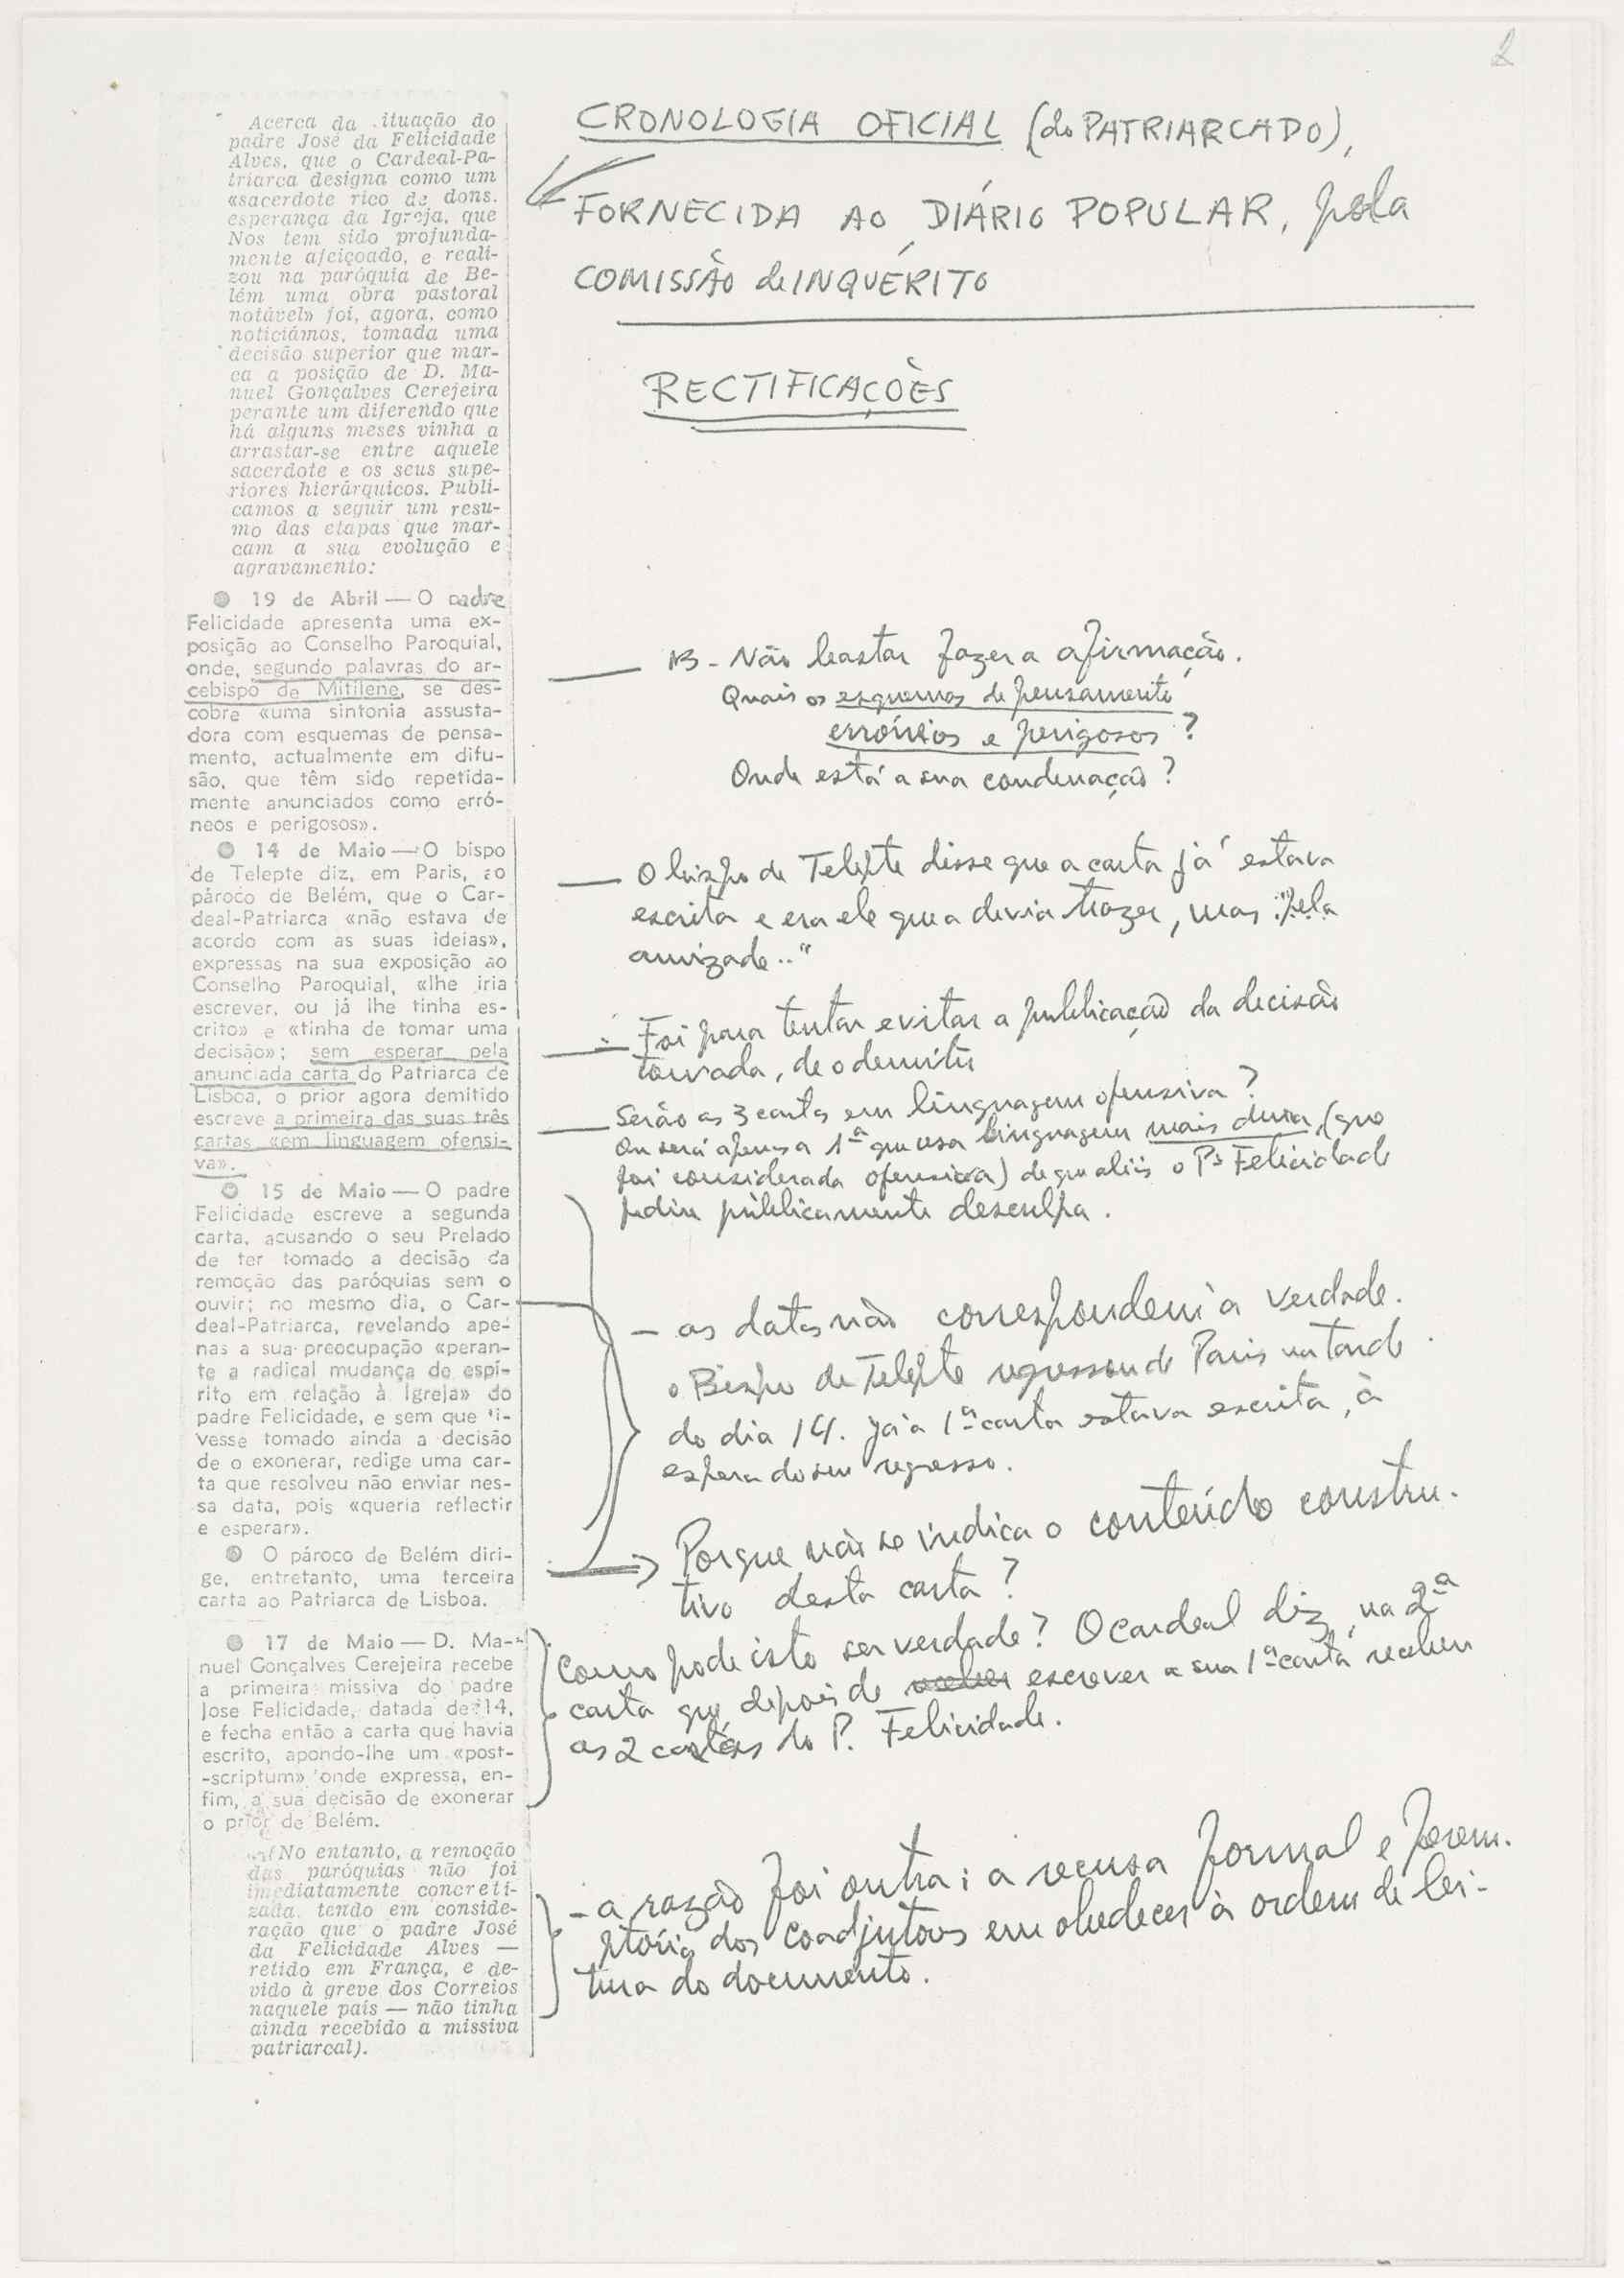 2
Acerca da ituação do
padre José da Felicidade
Alves, que o Cardeal-Pa-
triarca designa como um
«sacerdote rico de dons.
esperança da Igreja, que
Nos tem sido profunda-
mente afeiçoado, e reali-
zou na paróquia de Be-
lém uma obra pastoral
notável» foi, agora, como
noticiámos, tomada uma
decisão superior que mar-
ca a posição de D. Ma-
nuel Gonçalves Cerejeira
perante um diferendo que
há alguns meses vinha a
arrastar-se entre aquele
sacerdote e os seus supe-
riores hierárquicos. Publi-
camos a seguir um resu-
mo das etapas que mar-
cam a sua evolução e
agravamento:
19 de Abril — O padre
Felicidade apresenta uma ex-
posição ao Conselho Paroquial,
onde, segundo palavras do ar-
cebispo de Mitilene, se des-
cobre «uma sintonia assusta-
dora com esquemas de pensa-
mento, actualmente em difu-
são, que têm sido repetida-
mente anunciados como erró-
neos e perigosos».
14 de Maio — O bispo
de Telepte diz, em Paris, ao
pároco de Belém, que o Car-
deal-Patriarca «não estava de
acordo com as suas ideias»,
expressas na sua exposição ao
Conselho Paroquial, «lhe iria
escrever, ou já lhe tinha es-
crito» e «tinha de tomar uma
decisão»; sem esperar pela
anunciada carta do Patriarca de
Lisboa, o prior agora demitido
escreve a primeira das suas três
cartas «em linguagem ofensi-
va».
15 de Maio — O padre
Felicidade escreve a segunda
carta, acusando o seu Prelado
de ter tomado a decisão da
remoção das paróquias sem o
ouvir; no mesmo dia, o Car-
deal-Patriarca, revelando ape-
nas a sua preocupação «peran-
te a radical mudança de espí-
rito em relação à Igreja» do
padre Felicidade, e sem que ti-
vesse tomado ainda a decisão
de o exonerar, redige uma car-
ta que resolveu não enviar nes-
sa data, pois «queria reflectir
e esperar».
O pároco de Belém diri-
ge, entretanto, uma terceira
carta ao Patriarca de Lisboa.
17 de Maio — D. Ma-
nuel Gonçalves Cerejeira recebe
a primeira missiva do padre
Jose Felicidade, datada de 14,
e fecha então a carta que havia
escrito, apondo-lhe um «post-
-scriptum» onde expressa, en-
fim, a sua decisão de exonerar
o prior de Belém.
(No entanto, a remoção
das paróquias não foi
imediatamente concreti-
zada, tendo em conside-
ração que o padre José
da Felicidade Alves —
retido em França, e de-
vido à greve dos Correios
naquele país — não tinha
ainda recebido a missiva
patriarcal).
CRONOLOGIA OFICIAL (do PATRIARCADO),
FORNECIDA AO DIÁRIO POPULAR, pela
COMISSÃO de INQUÉRITO
RECTIFICAÇÕES
NB - Não bastar fazer a afirmação.
Quais os esquemas de pensamento
erróneos e perigosos?
Onde está a sua condenação?
O bispo de Telepte disse que a carta já estava
escrita e era ele que a devia trazer, mas "pela
amizade.."
Foi para tentar evitar a publicação da decisão
tomada, de o demitir
Serão as 3 cartas em linguagem ofensiva?
Ou será apenas a 1ª que usa linguagem mais dura, (que
foi considerada ofensiva) de que aliás o Pe Felicidade
pediu públicamente desculpa.
- as datas não correspondem à verdade.
o Bispo de Telepte regressou de Paris na tarde
do dia 14. Já a 1ª carta estava escrita, à
espera do seu regresso.
Porque não se indica o conteúdo constru-
tivo desta carta?
Como pode isto ser verdade? O cardeal diz, na 2ª
carta que depois de escrever a sua 1ª carta recebeu
as 2 cartas do P. Felicidade.
- a razão foi outra: a recusa formal e perem-
ptória dos coadjutores em obedecer à ordem de lei-
tura do documento.